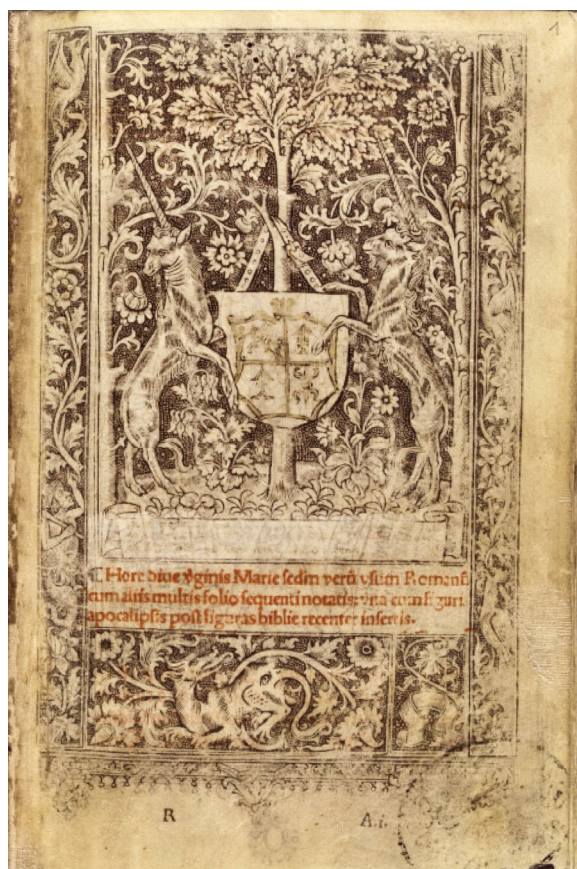 1
¶ Hore diue v̾ginis Marie scdm verũ vsum Romanũ
cum aliis multis folio sequenti notatis: vna cum figuris
apocalipsis post figuras biblie recenter insertis.
R A.i.